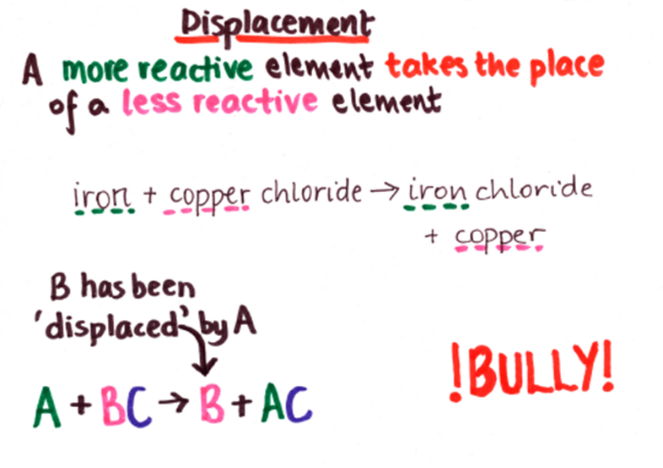 Displacement
A more reactive element takes the place
of a less reactive element
iron + copper chloride → iron chloride
+ copper
B has been
'displaced' by A
A + BC → B + AC
!BULLY!